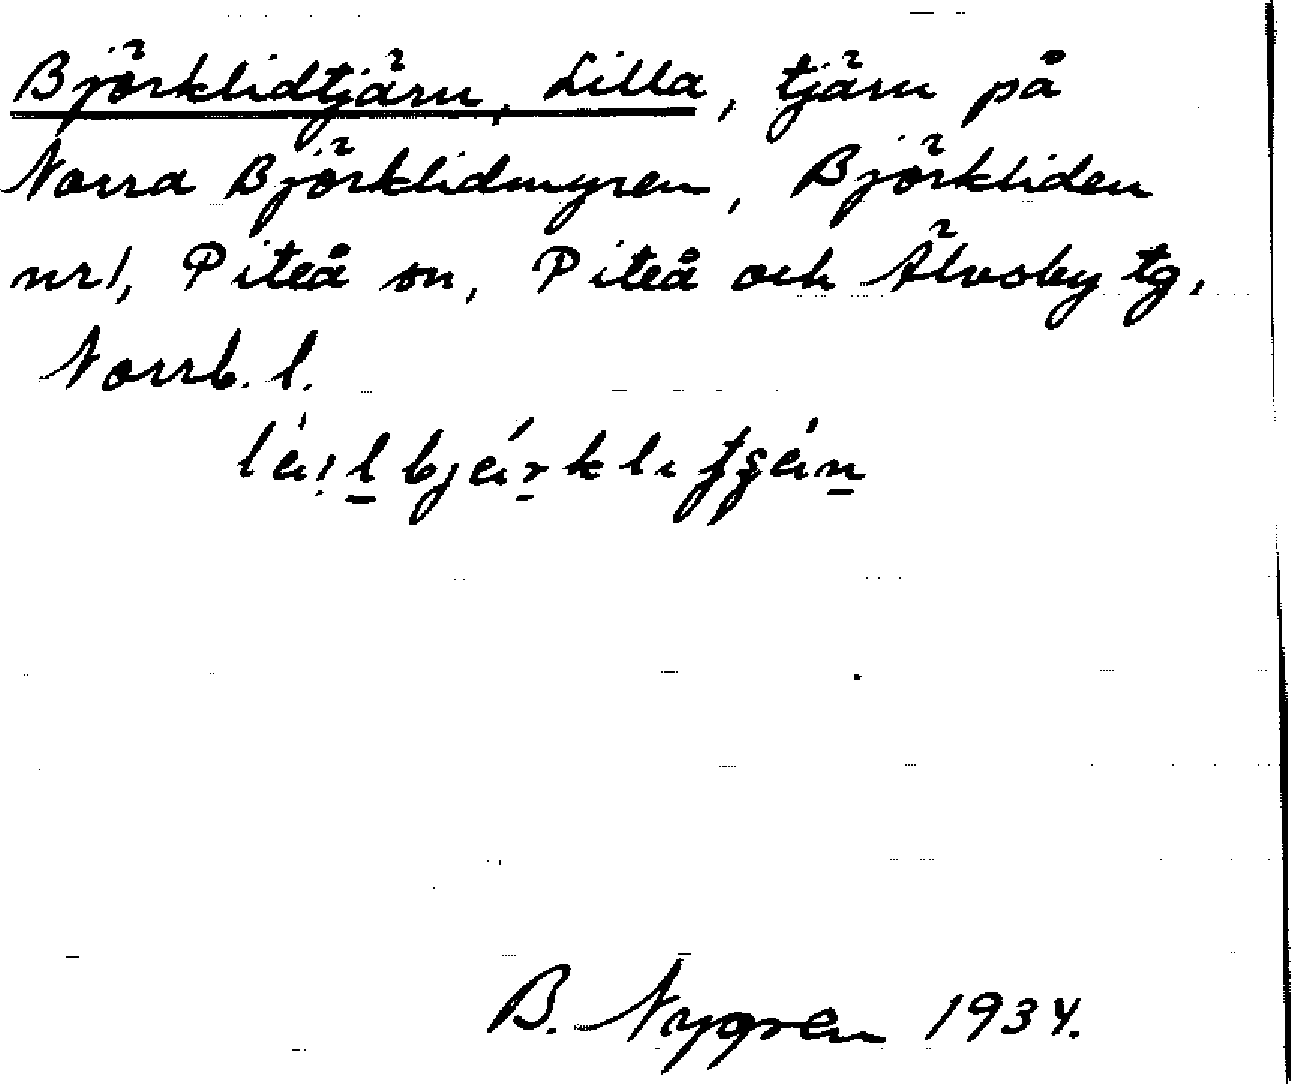 Björklidtjärn, Lilla, tjärn på
Norra Björklidmyren, Björkliden
nr 1, Piteå sn, Piteå och Älvsby tg,
Norrb. l.
B. Nygren 1934.